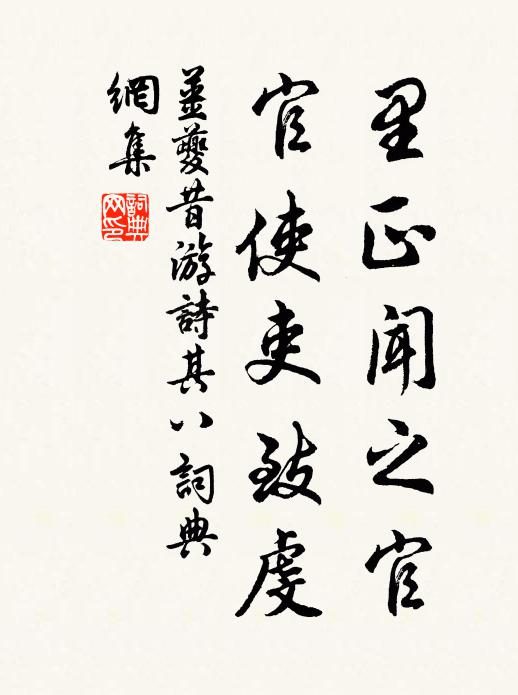 里正聞之官
官使吏致虔
姜夔昔游詩其八詞典
網集
詞典
网印